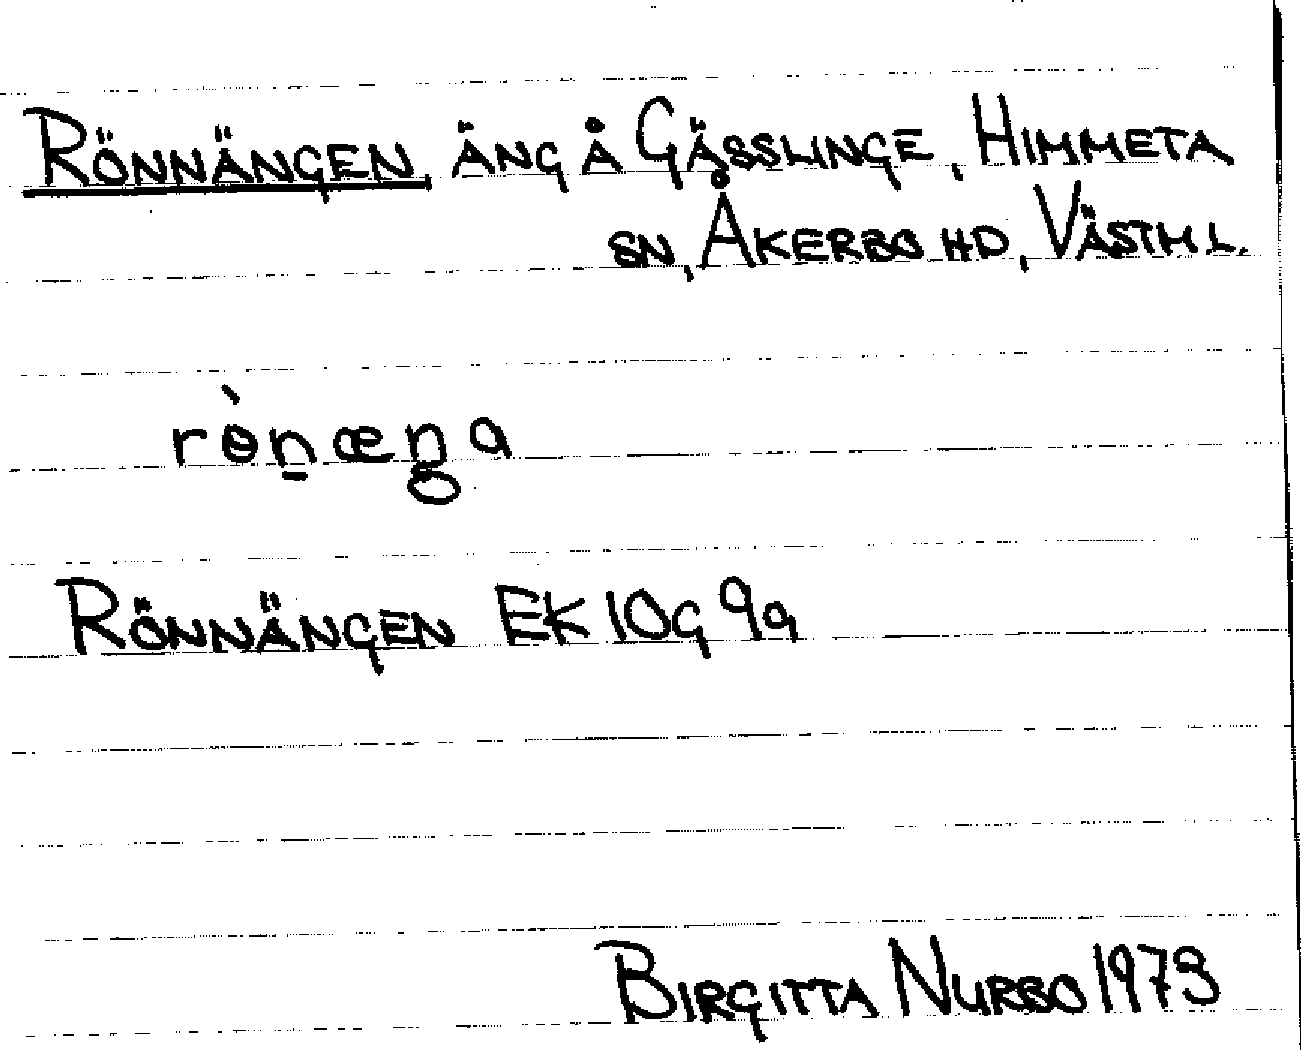 RÖNNÄNGEN, ÄNG Å GÄSSLINGE, HIMMETA
SN, ÅKERBO HD, VÄSTML.
rὸn̲æŋa
RÖNNÄNGEN EK 10G 9a
BIRGITTA NURBO 1973